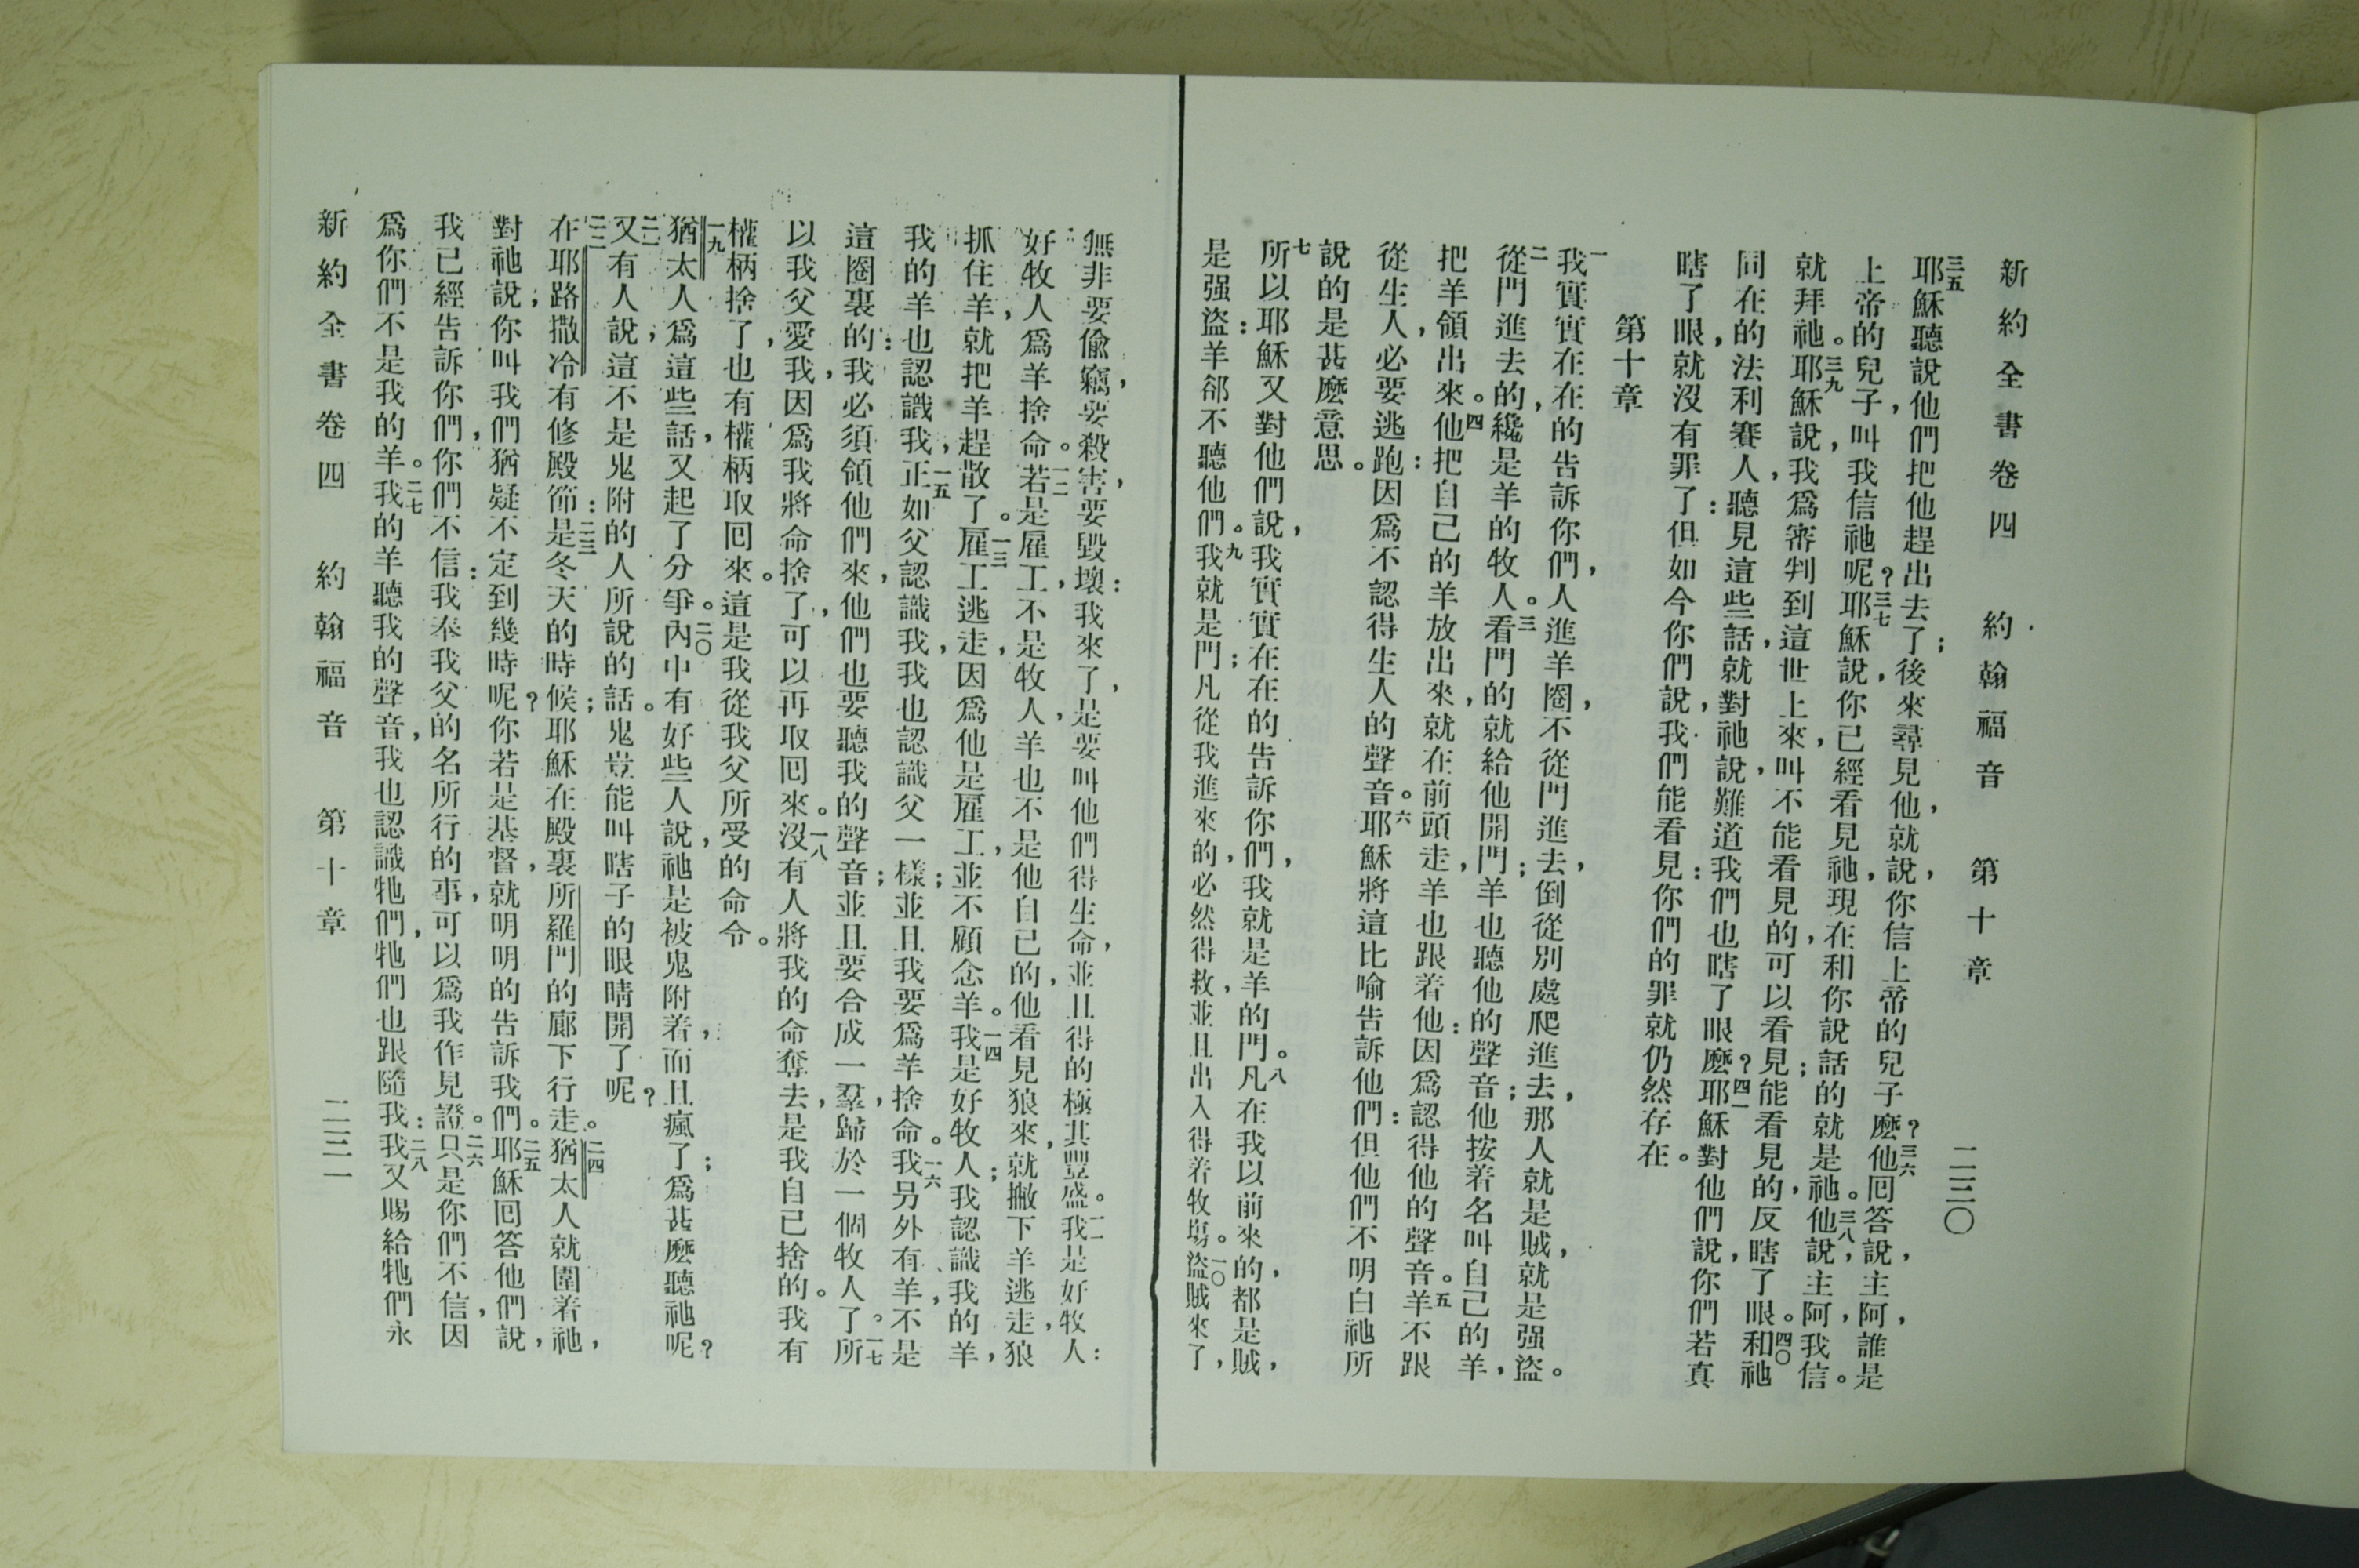 新約全書卷四 約翰福音 第十章 二三〇
三五耶穌聽說他們把他趕出去了；後來尋見他，就說，你信上帝的兒子麽？三六他囘答說，主阿，誰是
上帝的兒子，叫我信祂呢？三七耶穌說，你已經看見祂，現在和你說話的就是祂。三八他說，主阿，我信。
就拜祂。三九耶穌說，我爲審判到這世上來，叫不能看見的，可以看見；能看見的，反瞎了眼。四〇和祂
同在的法利賽人，聽見這些話，就對祂說，難道我們也瞎了眼麽？四一耶穌對他們說，你們若真
瞎了眼，就沒有罪了：但如今你們說，我們能看見：你們的罪就仍然存在。
第十章
一我實實在在的告訴你們，人進羊圈，不從門進去，倒從別處爬進去，那人就是賊，就是强盜。
二從門進去的，纔是羊的牧人。三看門的就給他開門；羊也聽他的聲音；他按着名叫自己的羊，
把羊領出來。四他把自己的羊放出來，就在前頭走，羊也跟着他：因爲認得他的聲音。五羊不跟
從生人，必要逃跑：因爲不認得生人的聲音。六耶穌將這比喻告訴他們：但他們不明白祂所
說的是甚麽意思。
七所以耶穌又對他們說，我實實在在的告訴你們，我就是羊的門。八凡在我以前來的，都是賊，
是强盜：羊郤不聽他們。九我就是門；凡從我進來的，必然得救，並且出入得着牧塲。一〇盜賊來了，
無非要偸竊，要殺害，要毀壞：我來了，是要叫他們得生命，並且得的極其豐盛。一一我是好牧人：
好牧人爲羊捨命。一二若是雇工，不是牧人，羊也不是他自己的，他看見狼來，就撇下羊逃走，狼
抓住羊，就把羊趕散了。一三雇工逃走，因爲他是雇工，並不顧念羊。一四我是好牧人；我認識我的羊，
我的羊也認識我，一五正如父認識我，我也認識父一樣；並且我要爲羊捨命。一六我另外有羊，不是
這圈裏的：我必須領他們來，他們也要聽我的聲音；並且要合成一羣，歸於一個牧人了。一七所
以我父愛我，因爲我將命捨了，可以再取囘來。一八沒有人將我的命奪去，是我自己捨的。我有
權柄捨了，也有權柄取囘來。這是我從我父所受的命令。
一九猶太人爲這些話，又起了分爭。二〇內中有好些人說，祂是被鬼附着，而且瘋了；爲甚麽聽祂呢？
二一又有人說，這不是鬼附的人所說的話。鬼豈能叫瞎子的眼睛開了呢？
二二在耶路撒冷有修殿節：二三是冬天的時候；耶穌在殿裏所羅門的廊下行走。二四猶太人就圍着祂，
對祂說；你叫我們猶疑不定到幾時呢？你若是基督，就明明的告訴我們。二五耶穌囘答他們說，
我已經告訴你們，你們不信：我奉我父的名所行的事，可以爲我作見證。二六只是你們不信，因
爲你們不是我的羊。二七我的羊聽我的聲音，我也認識牠們，牠們也跟隨我：二八我又賜給牠們永
新約全書卷四 約翰福音 第十章 二三一